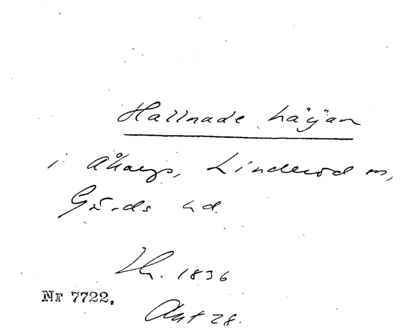 Hallnade häjan
i Åkarp, Linderöd sn,
Gärds hd.
Th. 1836
Nr 7722.
Ant 28.